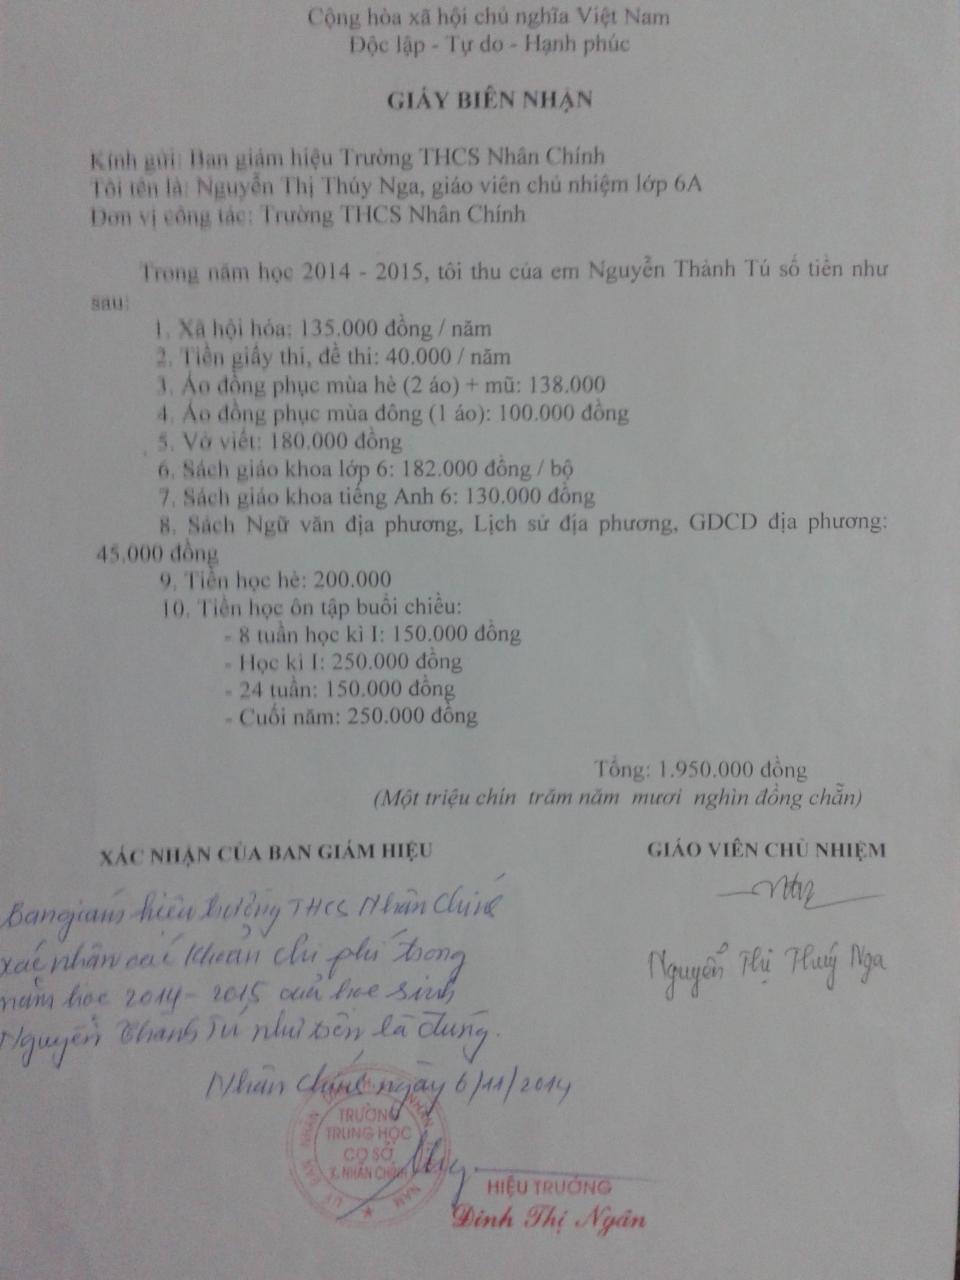 Cộng hòa xã hội chủ nghĩa Việt Nam
Độc lập - Tự do - Hạnh phúc
GIẤY BIÊN NHẬN
Kính gửi: Ban giám hiệu Trường THCS Nhân Chính
Tôi tên là: Nguyễn Thị Thúy Nga, giáo viên chủ nhiệm lớp 6A
Đơn vị công tác: Trường THCS Nhân Chính
Trong năm học 2014 - 2015, tôi thu của em Nguyễn Thành Tú số tiền như
sau:
1. Xã hội hóa: 135.000 đồng / năm
2. Tiền giấy thi, đề thi: 40.000 / năm
3. Áo đồng phục mùa hè (2 áo) + mũ: 138.000
4. Áo đồng phục mùa đông (1 áo): 100.000 đồng
5. Vở viết: 180.000 đồng
6. Sách giáo khoa lớp 6: 182.000 đồng / bộ
7. Sách giáo khoa tiếng Anh 6: 130.000 đồng
8. Sách Ngữ văn địa phương, Lịch sử địa phương, GDCD địa phương:
45.000 đồng
9. Tiền học hè: 200.000
10. Tiền học ôn tập buổi chiều:
- 8 tuần học kì I: 150.000 đồng
- Học kì I: 250.000 đồng
- 24 tuần: 150.000 đồng
- Cuối năm: 250.000 đồng
Tổng: 1.950.000 đồng
(Một triệu chín trăm năm mươi nghìn đồng chẵn)
XÁC NHẬN CỦA BAN GIÁM HIỆU
GIÁO VIÊN CHỦ NHIỆM
Ban giám hiệu trường THCS Nhân Chính
xác nhận các khoản chi phí trong
năm học 2014-2015 của học sinh
Nguyễn Thành Tú như trên là đúng.
Nguyễn Thị Thuý Nga
Nhân Chính ngày 6/11/2014
TRƯỜNG
TRUNG HỌC
CƠ SỞ
X. NHÂN CHÍNH
HIỆU TRƯỞNG
Đinh Thị Ngân